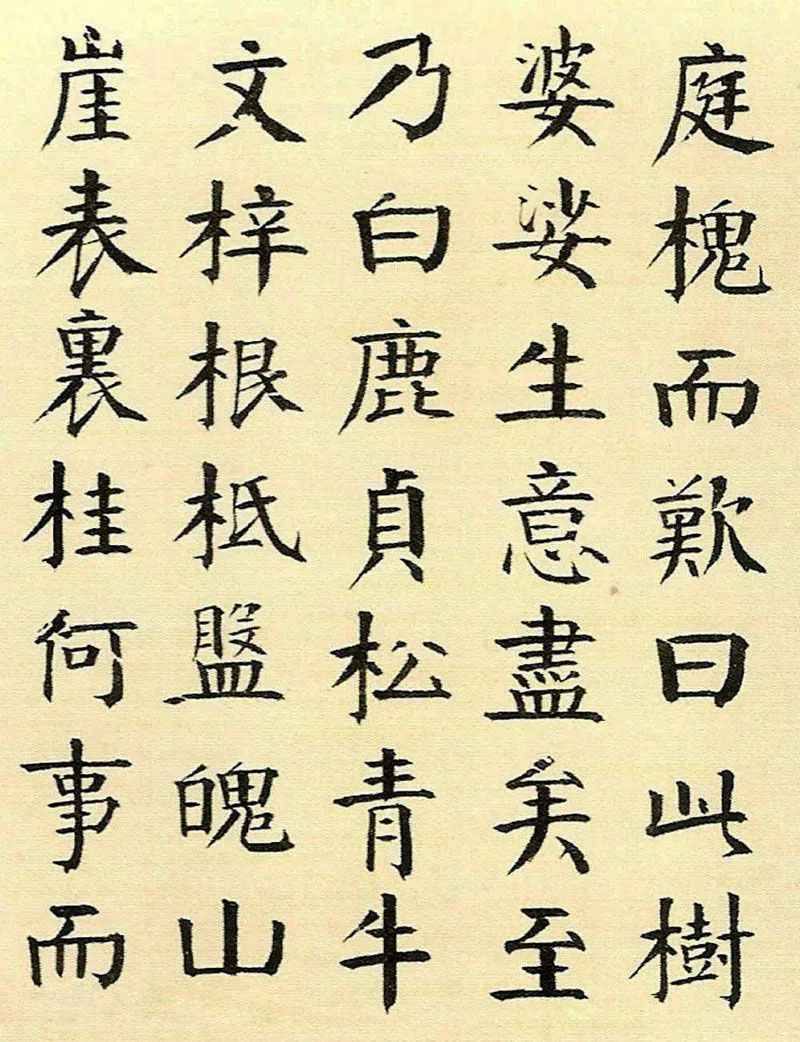 庭槐而歎曰此樹
婆娑生意盡矣至
乃白鹿貞松青牛
文梓根柢盤魄山
崖表裏桂何事而